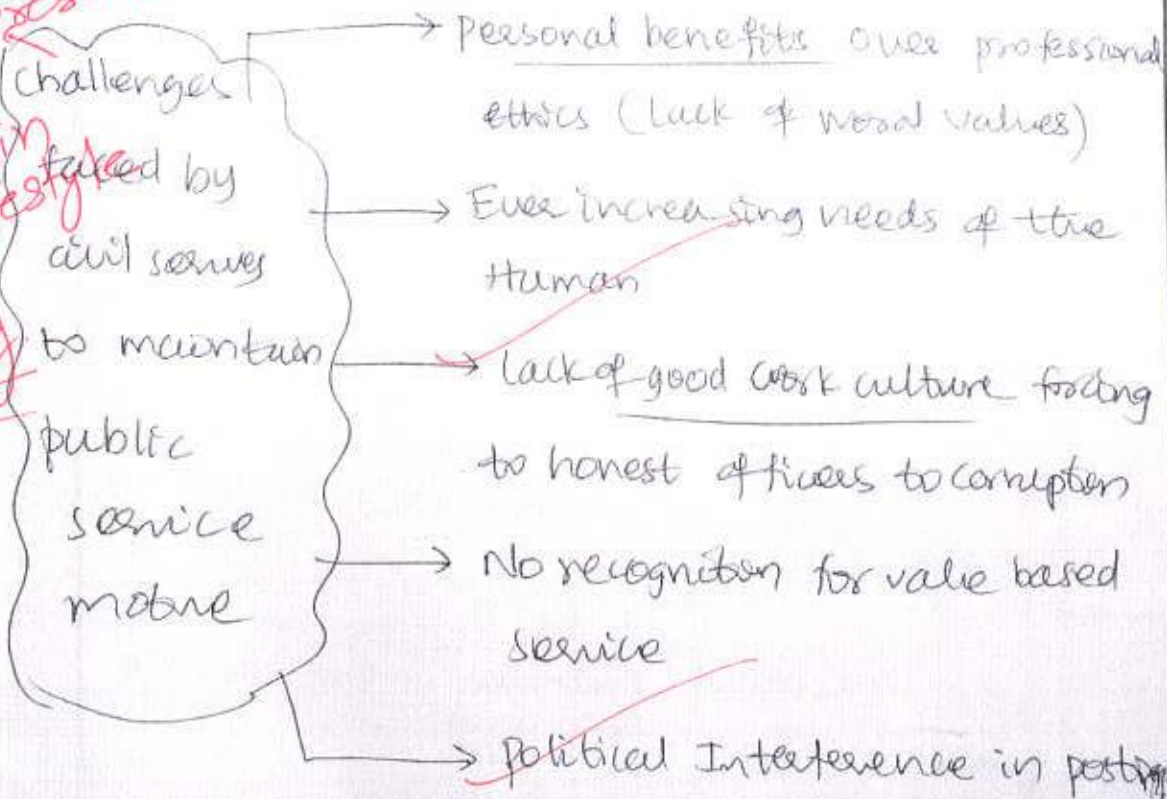 Challenges
faced by
civil serves
to maintain
public
service
motive
→ Personal benefits over professional
ethics (Lack of moral values)
→ Ever increasing needs of the
Human
→ Lack of good work culture forcing
to honest officers to corruption
→ No recognition for value based
service
→ Political Interference in posting